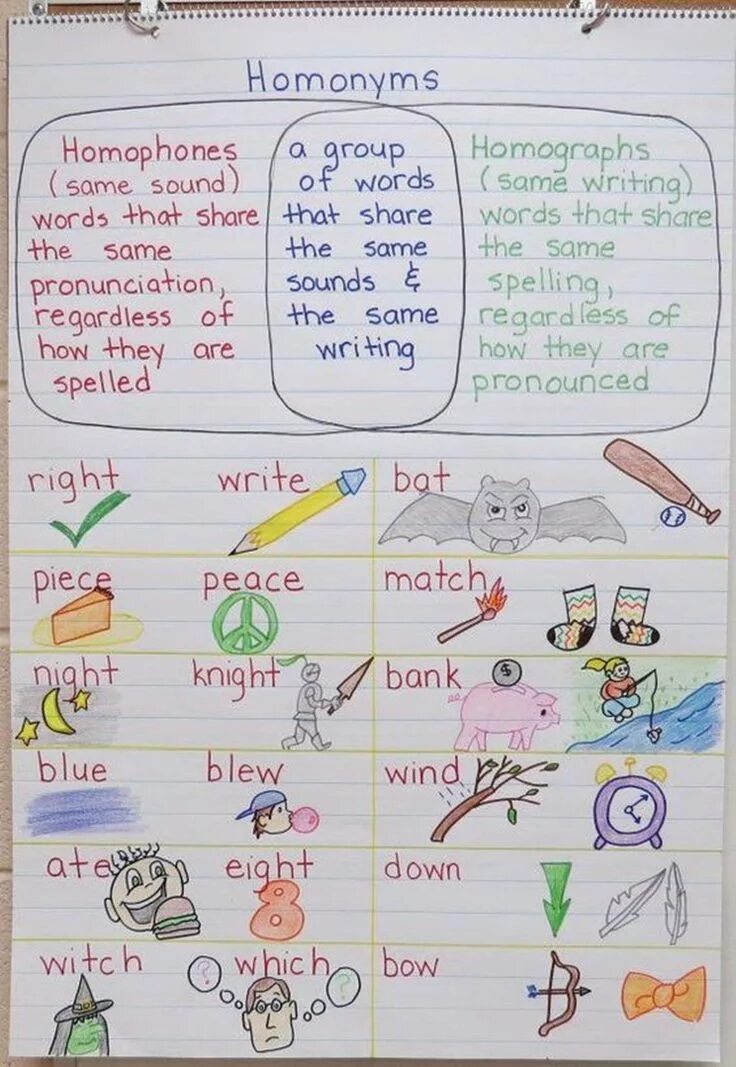 Homonyms
Homophones
(same sound)
words that share
the same
pronunciation,
regardless of
how they are
spelled
a group
of words
that share
the same
sounds &
the same
writing
Homographs
(same writing)
words that share
the same
spelling,
regardless of
how they are
pronounced
right write bat
piece peace match
night knight bank
$
blue blew wind
ate eight down
8
witch which bow
? ?